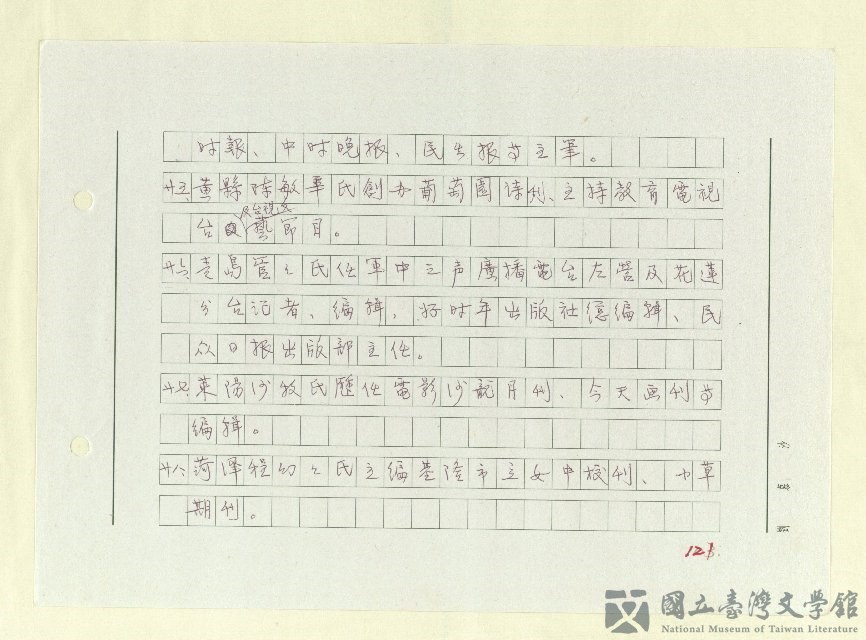 时報、中时晚报、民生报等主筆。
黃縣陳敏華氏創办葡萄園詩刊、主持教育電視
及台視
台藝節目。
青島管管氏任軍中之声廣播電台左营及花蓮
分台记者、编輯，好时年出版社總编輯、民
众日报出版部主任。
萊陽沙牧氏歷任電影沙龍月刊、今天画刊等
编輯。
菏澤氏主编基隆市立女中校刊、小草
期刊。
121.
國立臺灣文學館
National Museum of Taiwan Literature